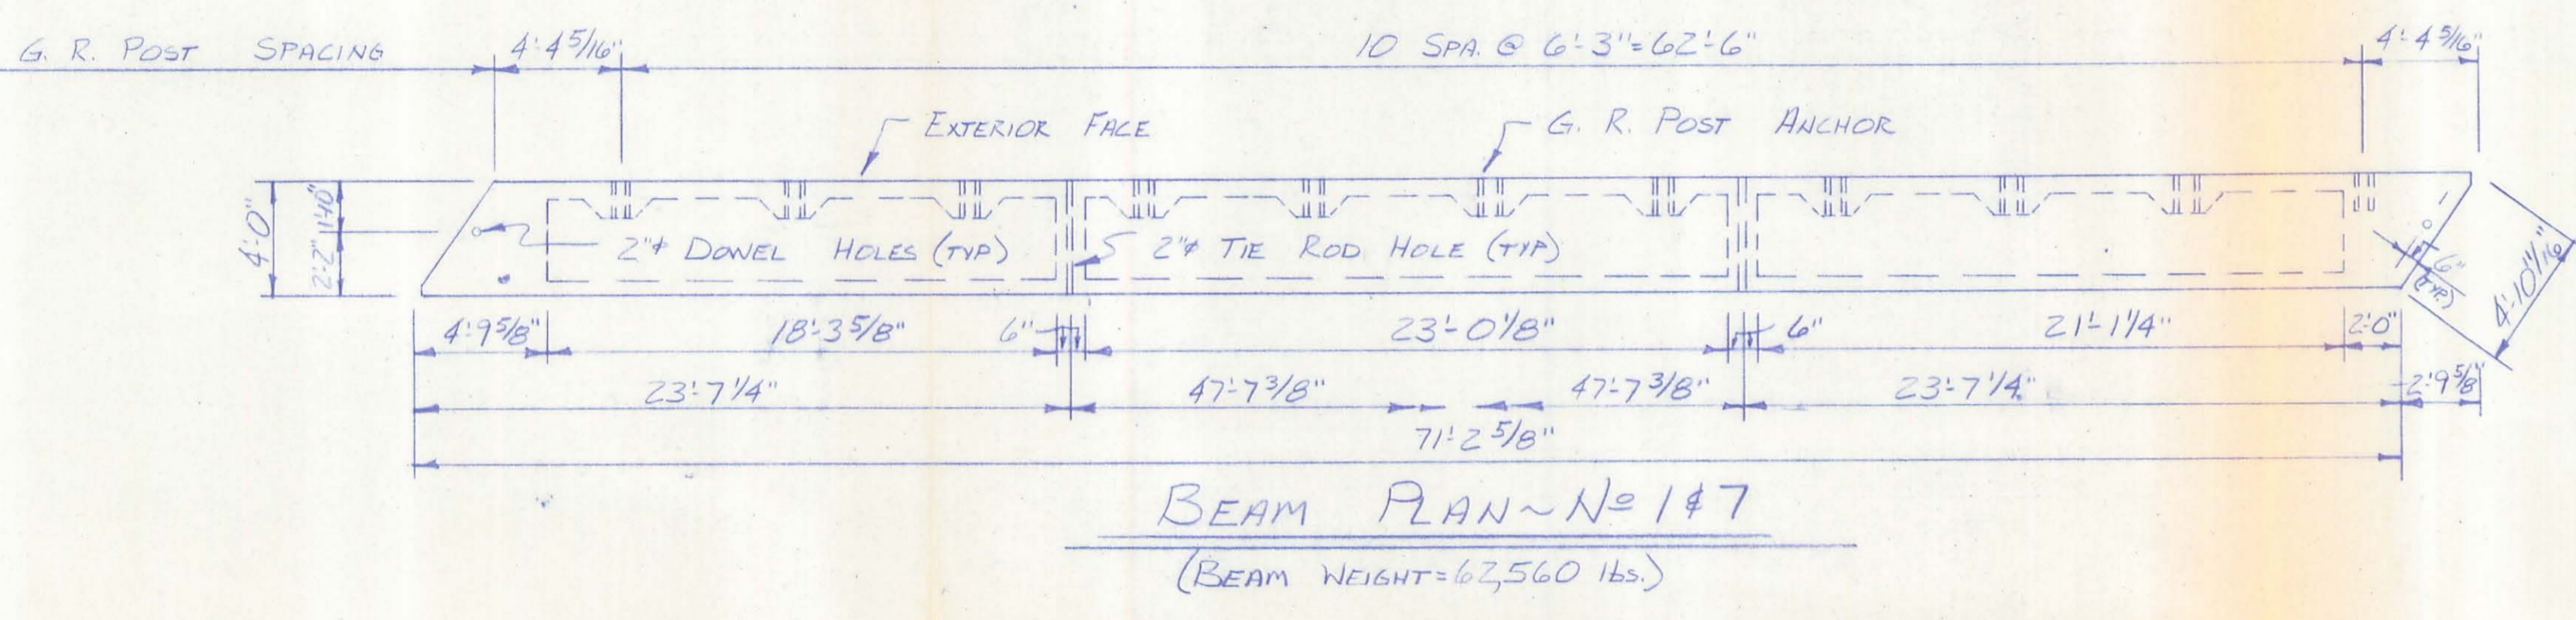 G. R. POST SPACING
4'-4 5/16"
10 SPA. @ 6'-3"=62'-6"
4'-4 5/16"
EXTERIOR FACE
G. R. POST ANCHOR
4'-0"
1'-10"
2'-2"
2"⌀ DOWEL HOLES (TYP)
2"⌀ TIE ROD HOLE (TYP)
6"
(TYP.)
4'-10 11/16"
4'-9 5/8"
18'-3 5/8"
6"
23'-0 1/8"
6"
21'-1 1/4"
2'-0"
23'-7 1/4"
47'-7 3/8"
47'-7 3/8"
23'-7 1/4"
2'-9 5/8"
71'-2 5/8"
BEAM PLAN ~ Nº 1 & 7
(BEAM WEIGHT=62,560 lbs.)